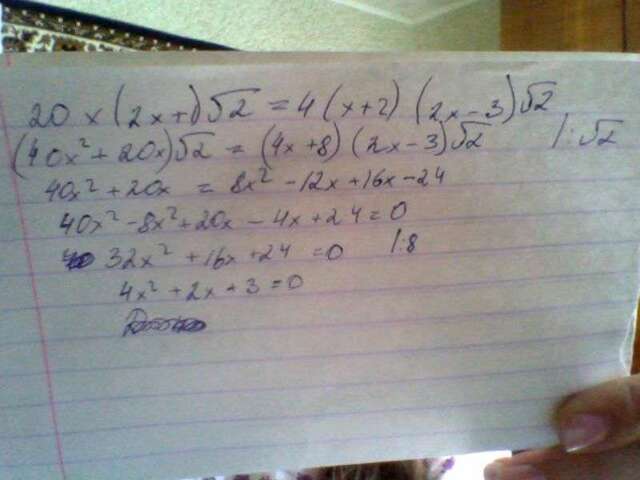 20x(2x+1)√2 = 4(x+2)(2x-3)√2
(40x²+20x)√2 = (4x+8)(2x-3)√2 /:√2
40x²+20x = 8x²-12x+16x-24
40x²-8x²+20x-4x+24=0
32x²+16x+24=0 /:8
4x²+2x+3=0